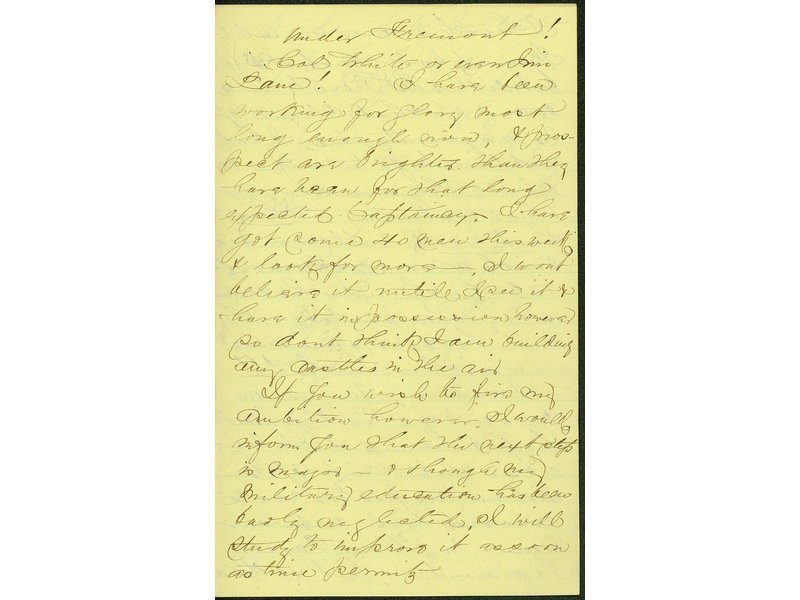 under Fremont!
Col White or even Jim
Lane! I have been
working for glory most
long enough now, & pros-
pect are brighter than they
have been for that long
expected Captaincy. I have
got some 40 men this week
& look for more—, I wont
believe it untile I see it &
have it in possession however
so dont think I am building
any castles in the air
If you wish to fire my
ambition however, I would
inform you that the next step
is major — & though my
military education has been
badly neglected, I will
study to improve it as soon
as time permits